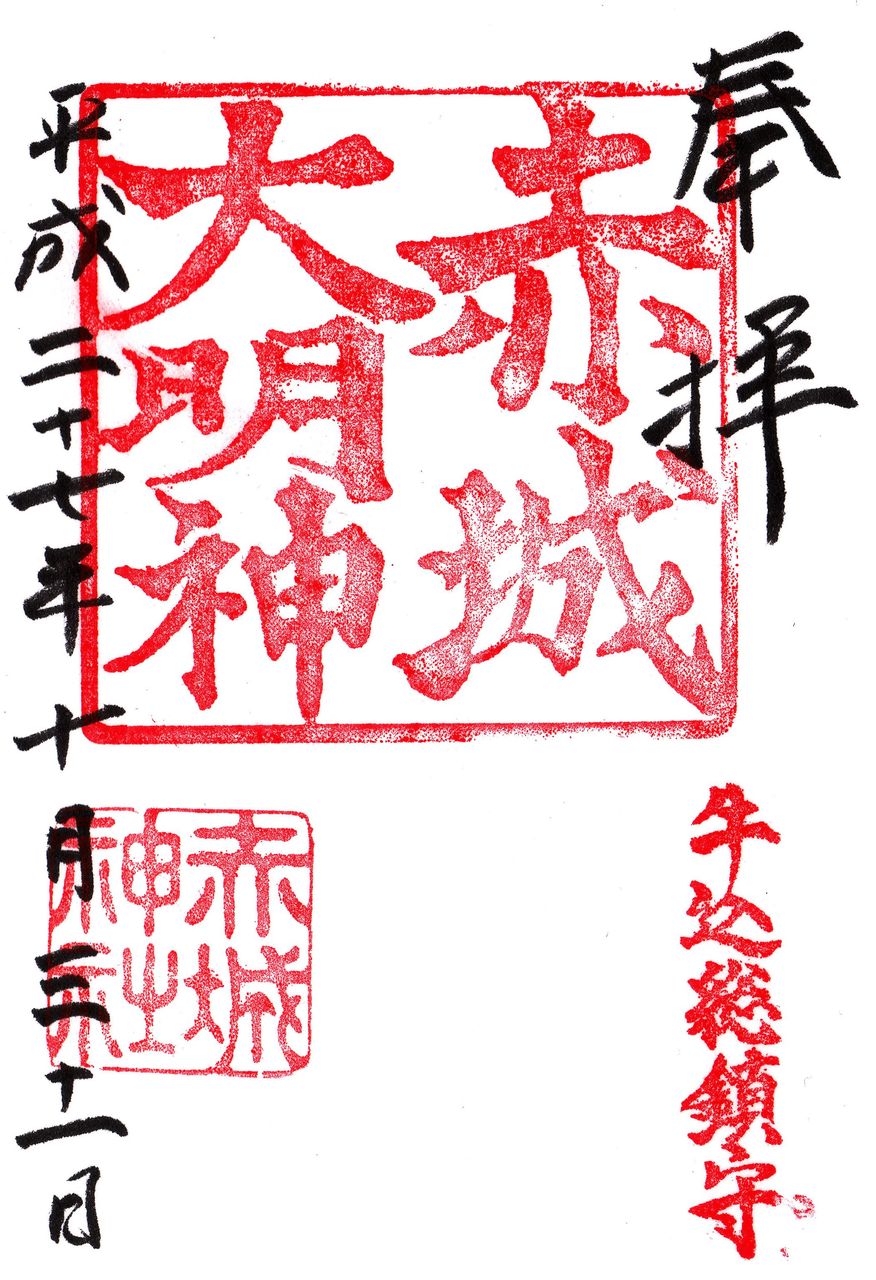 奉拝
赤城
大明神
牛込総鎮守
赤城
神社
平成二十七年十月三十一日